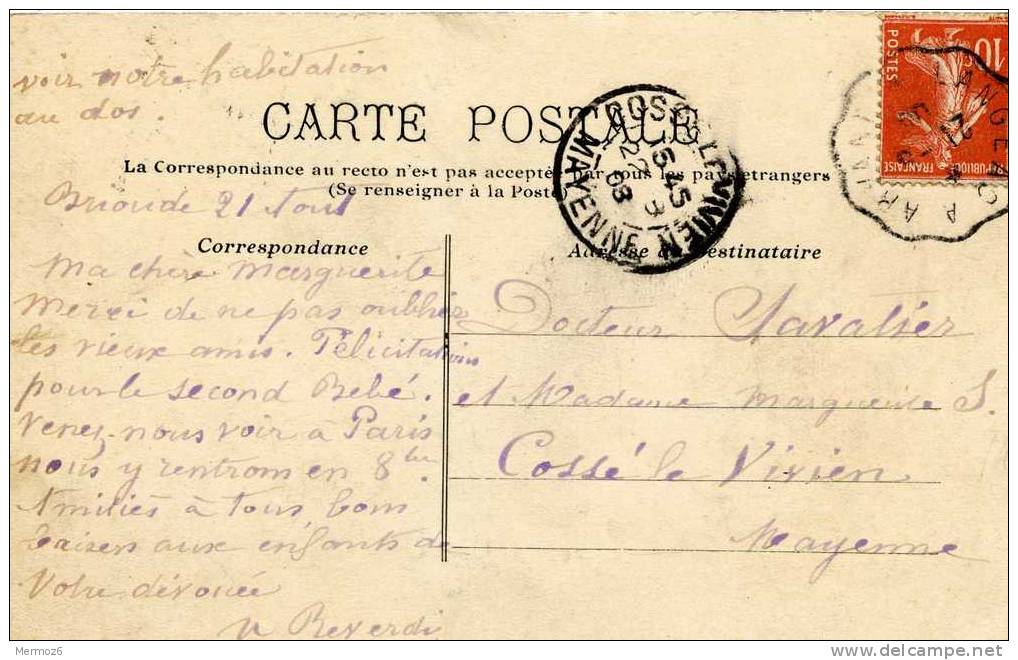 voir notre habitation
au dos.
CARTE POSTALE
La Correspondance au recto n'est pas acceptée par tous les pays étrangers
(Se renseigner à la Poste
Brioude 21 Aout
Correspondance
Adresse du Destinataire
Ma chère Marguerite
Merci de ne pas oublier
les vieux amis. Félicitations
pour le second Bébé.
Venez-nous voir à Paris
nous y rentrons en 8bre.
Amitiés à tous bons
baisers aux enfants de
Votre dévouée
Reverdi
Docteur
et Madame Marguerite S.
Cossé le Vivien
Mayenne
COSSÉ-LE-VIVIEN
5 45
22 8
08
MAYENNE
10
POSTES
RÉPUBLIQUE FRANÇAISE
LANGEAC A
Mermoz6
delcampe.net